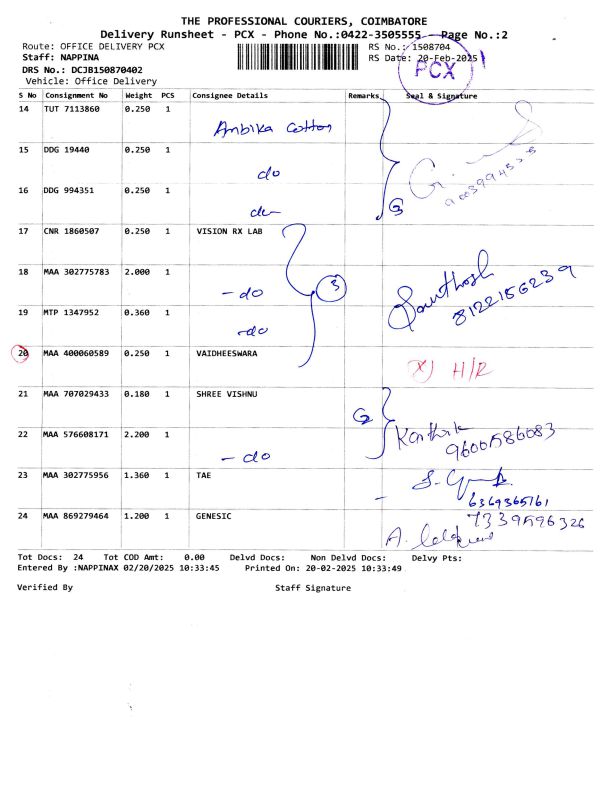 THE PROFESSIONAL COURIERS, COIMBATORE
Delivery Runsheet - PCX - Phone No.:0422-3505555 Page No.:2
Route: OFFICE DELIVERY PCX RS No.: 1508704
Staff: NAPPINA RS Date: 20-Feb-2025
PCX
DRS No.: DCJB150870402
Vehicle: Office Delivery
S No Consignment No Weight PCS Consignee Details Remarks Seal & Signature
14 TUT 7113860 0.250 1 Ambika Cotton
15 DDG 19440 0.250 1 do
16 DDG 994351 0.250 1 do
17 CNR 1860507 0.250 1 VISION RX LAB
18 MAA 302775783 2.000 1 - do 3 Santhosh
8122156239
19 MTP 1347952 0.360 1 - do
20 MAA 400060589 0.250 1 VAIDHEESWARA X) H/R
21 MAA 707029433 0.180 1 SHREE VISHNU
22 MAA 576608171 2.200 1 - do Karthik
9600586083
23 MAA 302775956 1.360 1 TAE
6369365761
24 MAA 869279464 1.200 1 GENESIC 7339596326
Tot Docs: 24 Tot COD Amt: 0.00 Delvd Docs: Non Delvd Docs: Delvy Pts:
Entered By :NAPPINAX 02/20/2025 10:33:45 Printed On: 20-02-2025 10:33:49
Verified By Staff Signature